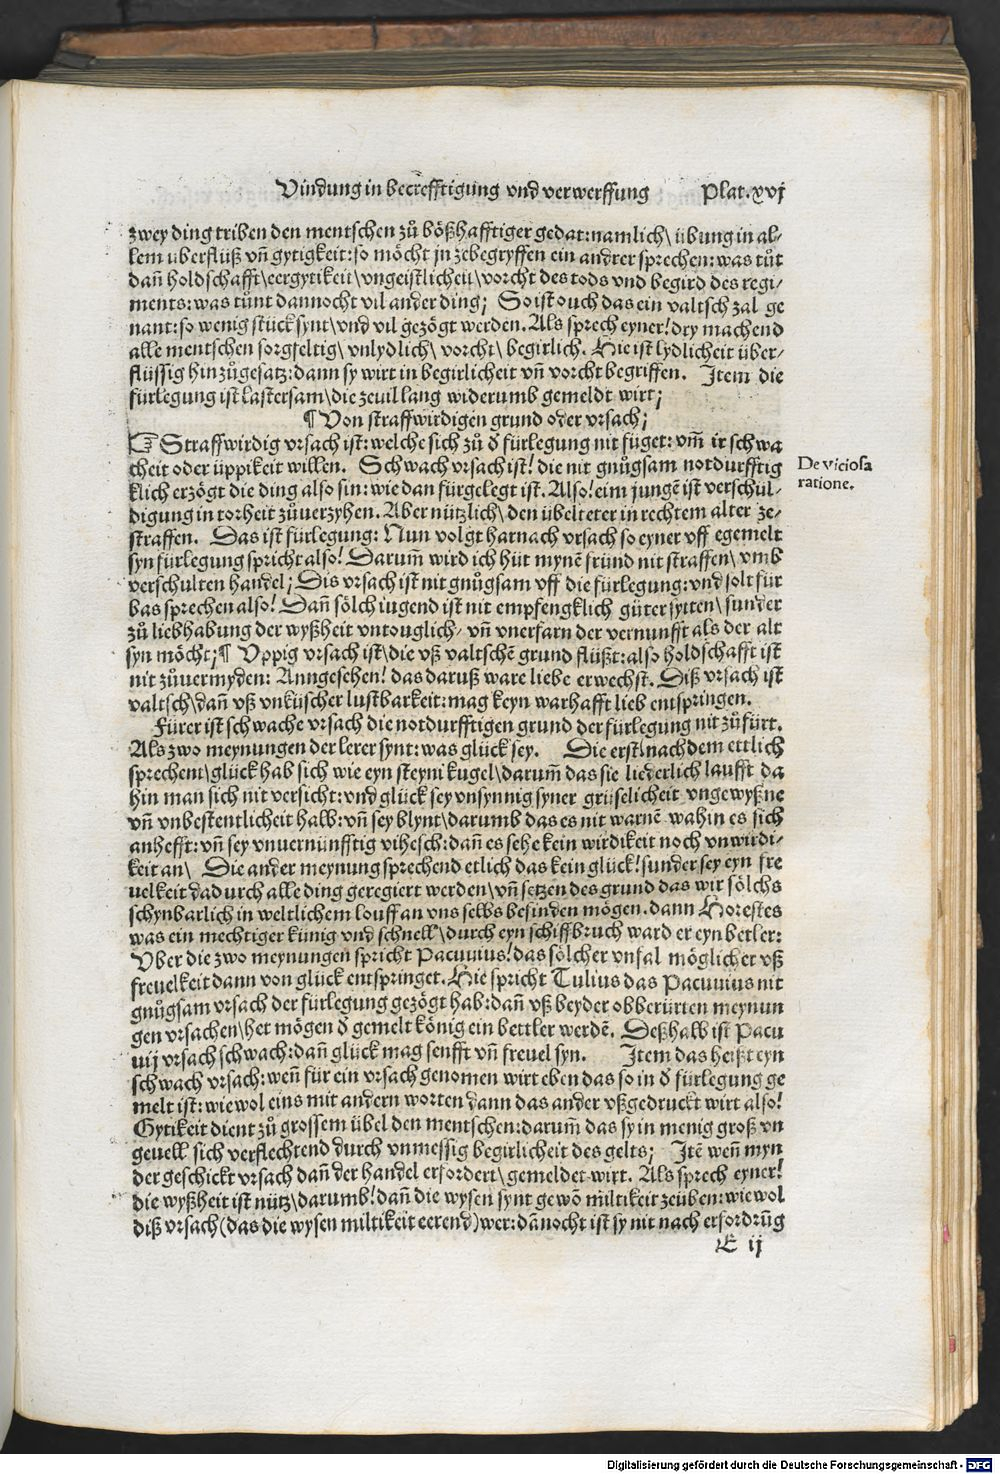 Vindung in becrefftigung vnd verwerffung Plat.xvj
zwey ding triben den mentschen zů bößhafftiger gedat:namlich\ übung in al⸗
lem uberflüß vñ gytigkeit:so möcht jn zebegryffen ein andrer sprechen:was tůt
dañ holdschafft\eergytikeit\vngeistlicheit\vorcht des tods vnd begird des regi⸗
ments:was tůnt dannocht vil ander ding; So ist ouch das ein valtsch zal ge
nant:so wenig stück synt\vnd vil gezögt werden. Als sprech eyner! dry machend
alle mentschen sorgfeltig\ vnlydlich\ vorcht\ begirlich. Hie ist lydlicheit über⸗
flüssig hinzůgesatz:dann sy wirt in begirlicheit vñ vorcht begriffen. Item die
fürlegung ist lastersam\die zeuil lang widerumb gemeldt wirt;
¶ Von straffwirdigen grund oder vrsach;
☞ Straffwirdig vrsach ist:welche sich zů d̄ fürlegung nit füget:vm̄ ir schwa
cheit oder üppikeit willen. Schwach vrsach ist! die nit gnůgsam notdurfftig
klich erzögt die ding also sin:wie dan fürgelegt ist. Also! eim jungē ist verschul⸗
digung in torheit zůuerzyhen. Aber nützlich\ den übelteter in rechtem alter ze⸗
straffen. Das ist fürlegung: Nun volgt harnach vrsach so eyner vff egemelt
syn fürlegung spricht also! Darum̄ wird ich hüt mynē fründ nit straffen\ vmb
verschulten handel; Dis vrsach ist nit gnůgsam vff die fürlegung:vnd solt für
bas sprechen also! Dañ sölch iugend ist nit empfengklich güter syten\ sunder
zů liebhabung der wyßheit vntouglich⸗ vñ vnerfarn der vernunfft als der alt
syn möcht;¶ Vppig vrsach ist\die vß valtschē grund flüßt:also holdschafft ist
nit zůuermyden: Anngesehen! das daruß ware liebe erwechst. Diß vrsach ist
valtsch\dañ vß vnküscher lustbarkeit:mag keyn warhafft lieb entspringen.
Fürer ist schwache vrsach die notdurfftigen grund der fürlegung nit zůfürt.
Als zwo meynungen der lerer synt:was glück sey. Die erst\nach dem ettlich
sprechent\glück hab sich wie eyn steyni kugel\darum̄ das sie liederlich laufft da
hin man sich nit versicht:vnd glück sey vnsynnig syner grüselicheit vngewyßne
vñ vnbestentlicheit halb:vñ sey blynt\darumb das es nit warnē wahin es sich
anhefft:vñ sey vnuernünfftig vihesch:dañ es sehe kein wirdikeit noch vnwirdi⸗
keit an\ Die ander meynung sprechend etlich das kein glück! sunder sey eyn fre
uelkeit dadurch alle ding geregiert werden\vñ setzen des grund das wir sölchs
schynbarlich in weltlichem louff an vns selbs befinden mögen.dann Horestes
was ein mechtiger künig vnd schnell\durch eyn schiffbruch ward er eyn betler:
Vber die zwo meynungen spricht Pacuuius! das sölcher vnfal möglicher vß
freuelkeit dann von glück entspringet. Hie spricht Tulius das Pacuuius nit
gnůgsam vrsach der fürlegung gezögt hab:dañ vß beyder obberürten meynun
gen vrsachen\het mögen d̄ gemelt könig ein bettler werdē. Deßhalb ist Pacu
uij vrsach schwach:dañ glück mag senfft vñ freuel syn. Item das heißt eyn
schwach vrsach:weñ für ein vrsach genomen wirt eben das so in d̄ fürlegung ge
melt ist:wiewol eins mit andern worten dann das ander vßgedruckt wirt also!
Gytikeit dient zů grossem übel den mentschen:darum̄ das sy in menig groß vn
geuell sich verflechtend durch vnmessig begirlicheit des gelts; Itē weñ myn
der geschickt vrsach dañ der handel erfordert\gemeldet wirt. Als sprech eyner!
die wyßheit ist nütz\darumb! dañ die wysen synt gewō miltikeit zeüben:wiewol
diß vrsach (das die wysen miltikeit eerend) wer:dānocht ist sy nit nach erfordrūg
E ij
De viciosa
ratione.
Digitalisierung gefördert durch die Deutsche Forschungsgemeinschaft - DFG